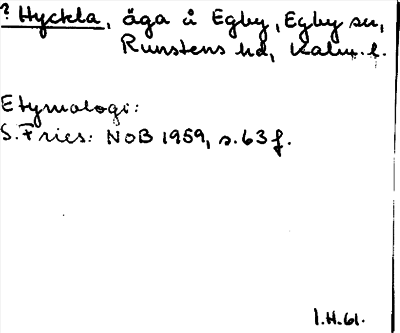 ? Hyckla, äga å Egby, Egby sn,
Runstens hd, Kalm. l.
Etymologi:
S. Fries: NoB 1959, s. 63 f.
I.H. 61.